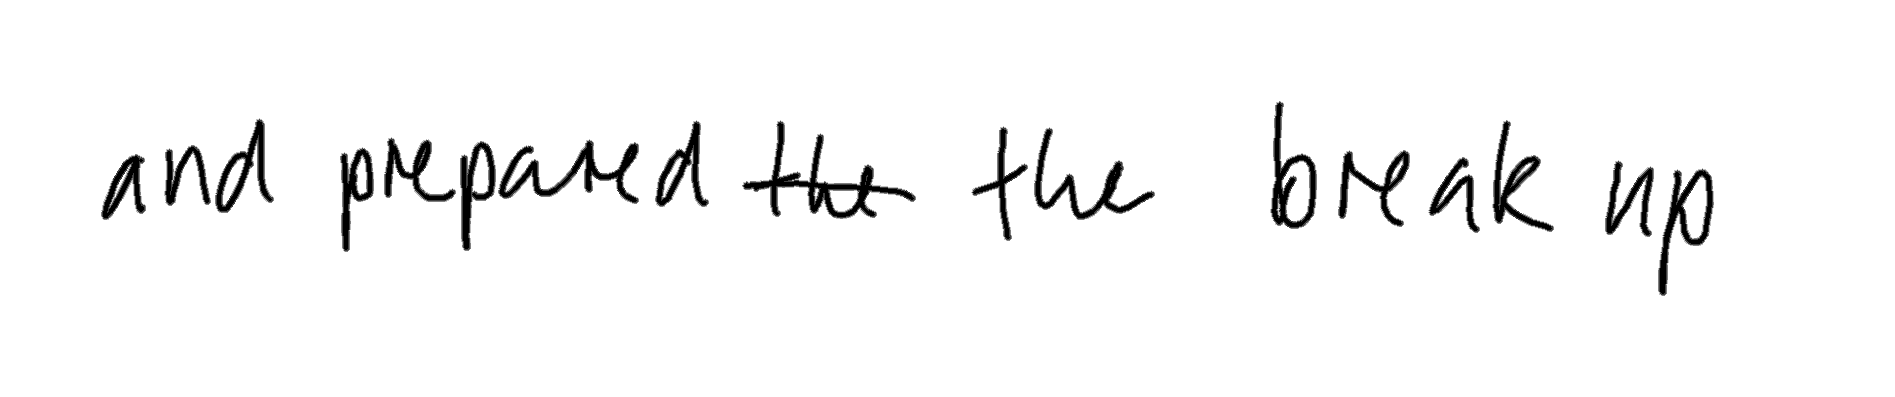 and prepared the the break up